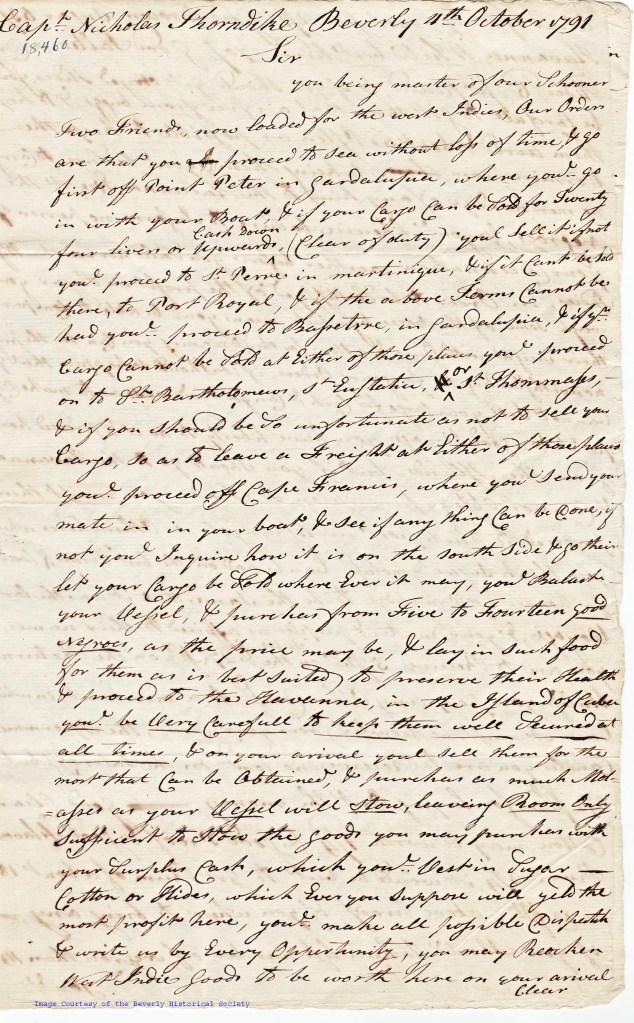 Capt. Nicholas Thorndike Beverly 4th October 1791
18,460
Sir
you being master of our Schooner
Two Friends, now loaded for the west Indies, Our Orders
are that you proceed to sea without loss of time, & go
first off Point Peter in Gardalupia, where youl go
in with your Boat, & if your Cargo Can be Sold for Twenty
Cash Down
four livers or Upwards, (Clear of duty) youl Sell it if not
youl proceed to St. Perre in martinique, & if it Cant be Sold
there, to Port Royal, & if the above Terms Cannot be
had youl proceed to Bassetrre, in Gardalupia, & if yr.
Cargo Cannot be Sold at Either of those plases youl proceed
on to St. Bartholomews, St Eustatia, or St. Thommases,
& if you should be So unfortunate as not to sell your
Cargo, so as to leave a Freight at Either of those plases
youl proceed off Cape Francis, where youl Send your
mate in in your boat, & see if any thing Can be Done, if
not youl Inquire how it is on the south Side & go their
let your Cargo be Sold where Ever it may, youl Balast
your Vessel, & purchas from Five to Fourteen good
Negroes, as the price may be, & lay in such food
for them as is best suited to preserve their Health
& proceed to the Havanna, in the Island of Cuba
youl be Very Carefull to keep them well Secured at
all times, & on your arival youl sell them for the
most that Can be Obtained, & purchas as much Mol-
=asses as your Vessel will Stow, leaveing Room Only
sufficient to Stow the goods you may purchas with
your Surplus Cash, which youl Vest in Sugar —
Cotton or Hides, which Ever you Suppose will yeld the
most profit here, youl make all possible Dispatch
& write us by Every Opportunity, you may Reacken
West Indie Goods to be worth here on your arival
Clear
Image Courtesy of the Beverly Historical Society